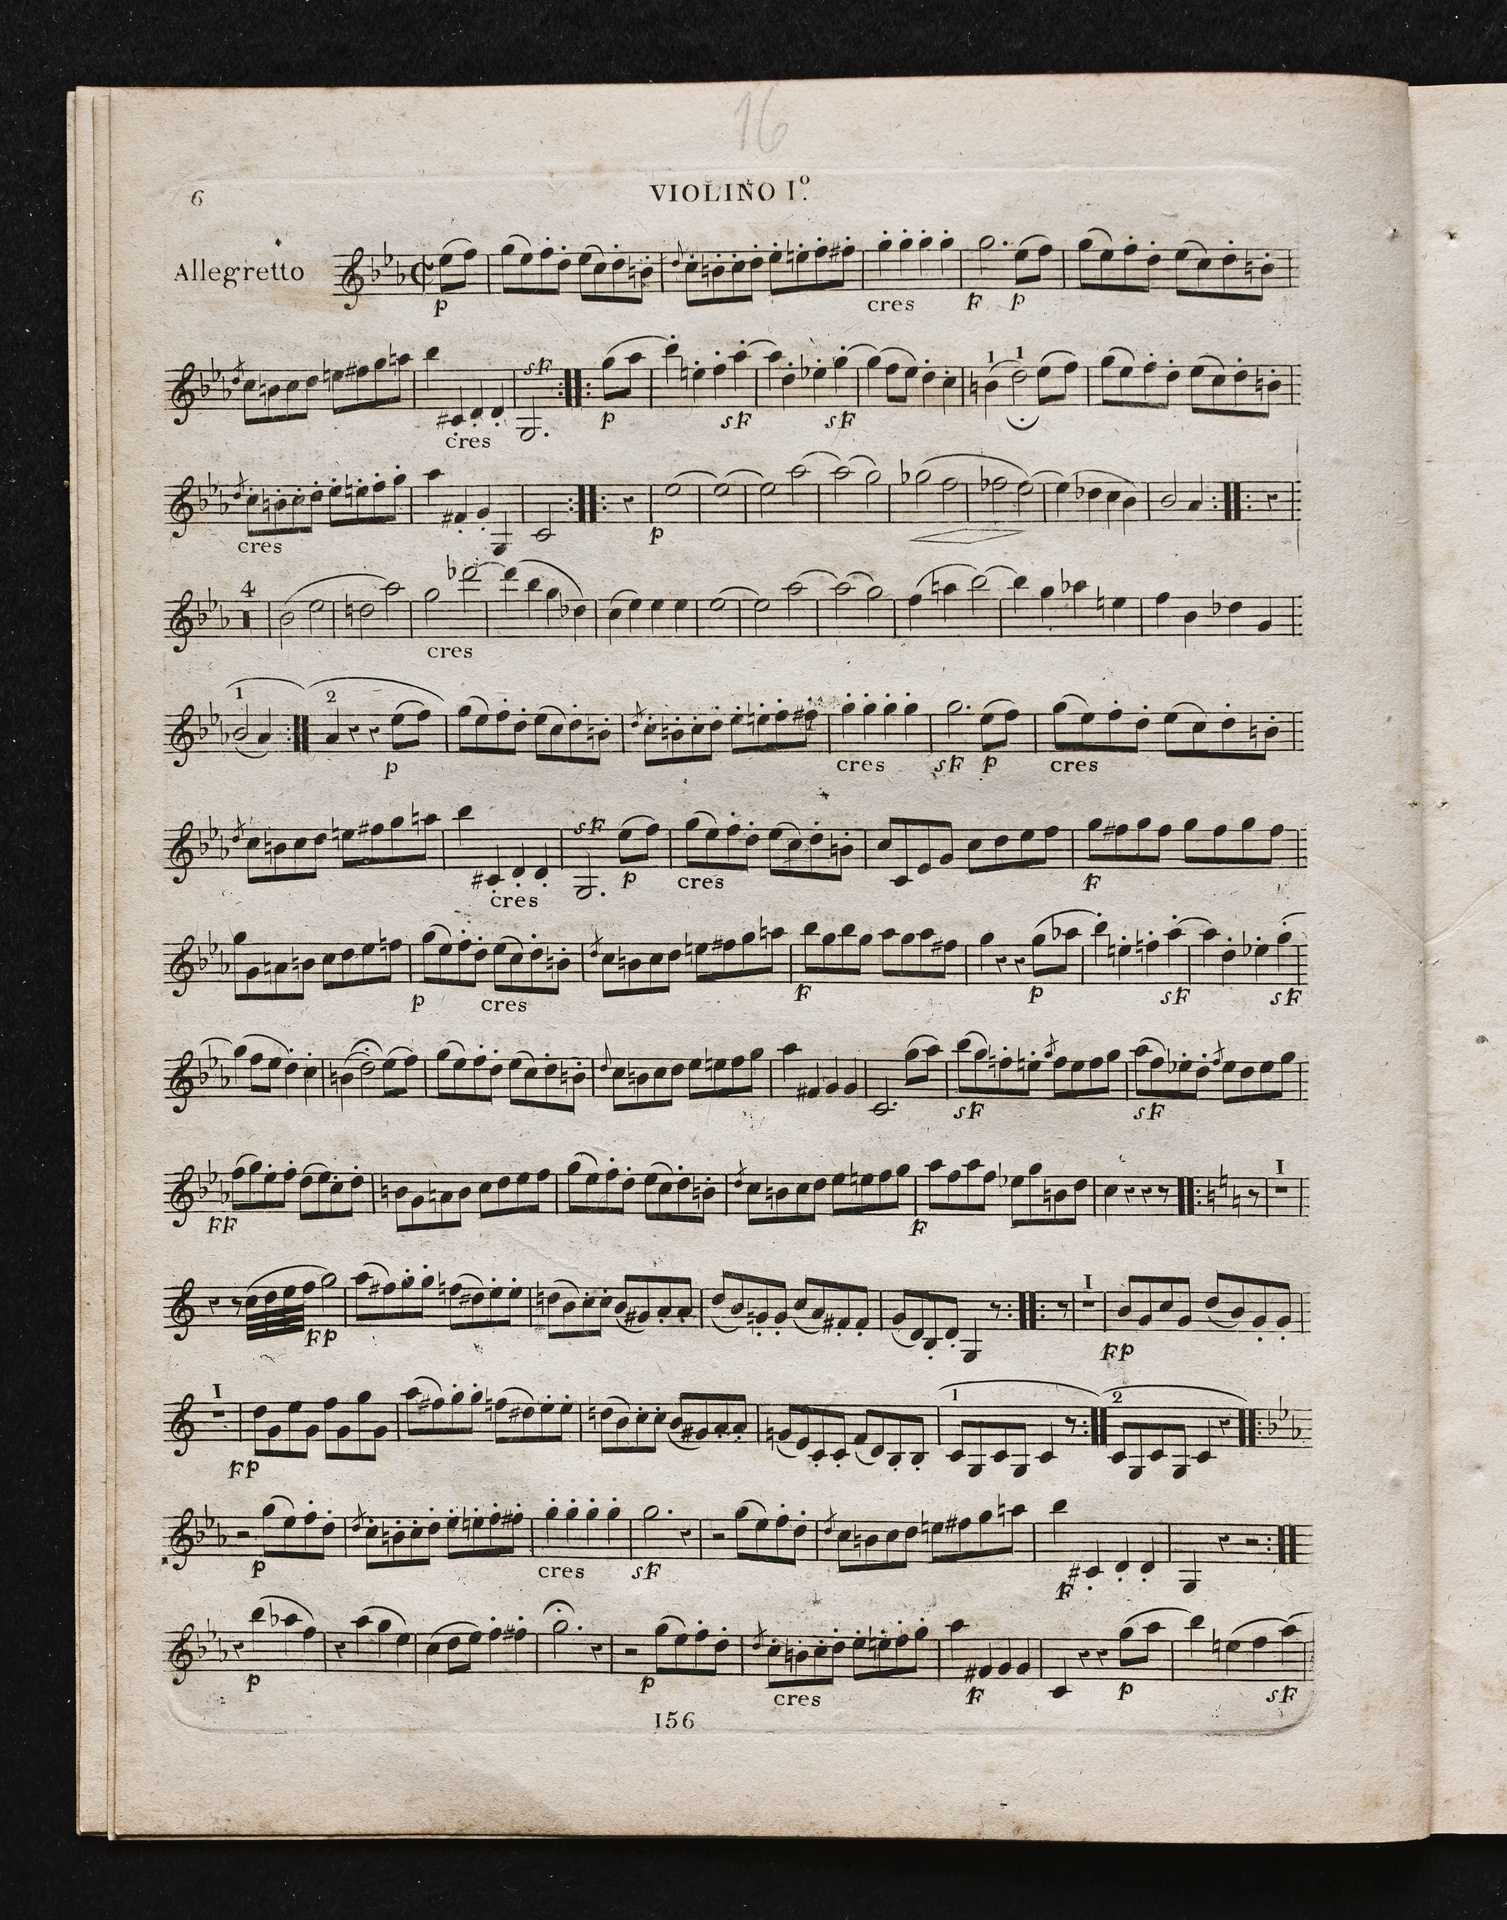 16
6
VIOLINO Iº.
Allegretto
p cres F p
sF 1 1
cres p sF sF
cres p
4
cres
1 2
p cres sF p cres
sF
cres p cres F
p cres F p sF sF
sF sF
I
FF F
I
FP FP
I 1 2
FP
p cres sF F
p p cres F p sF
156